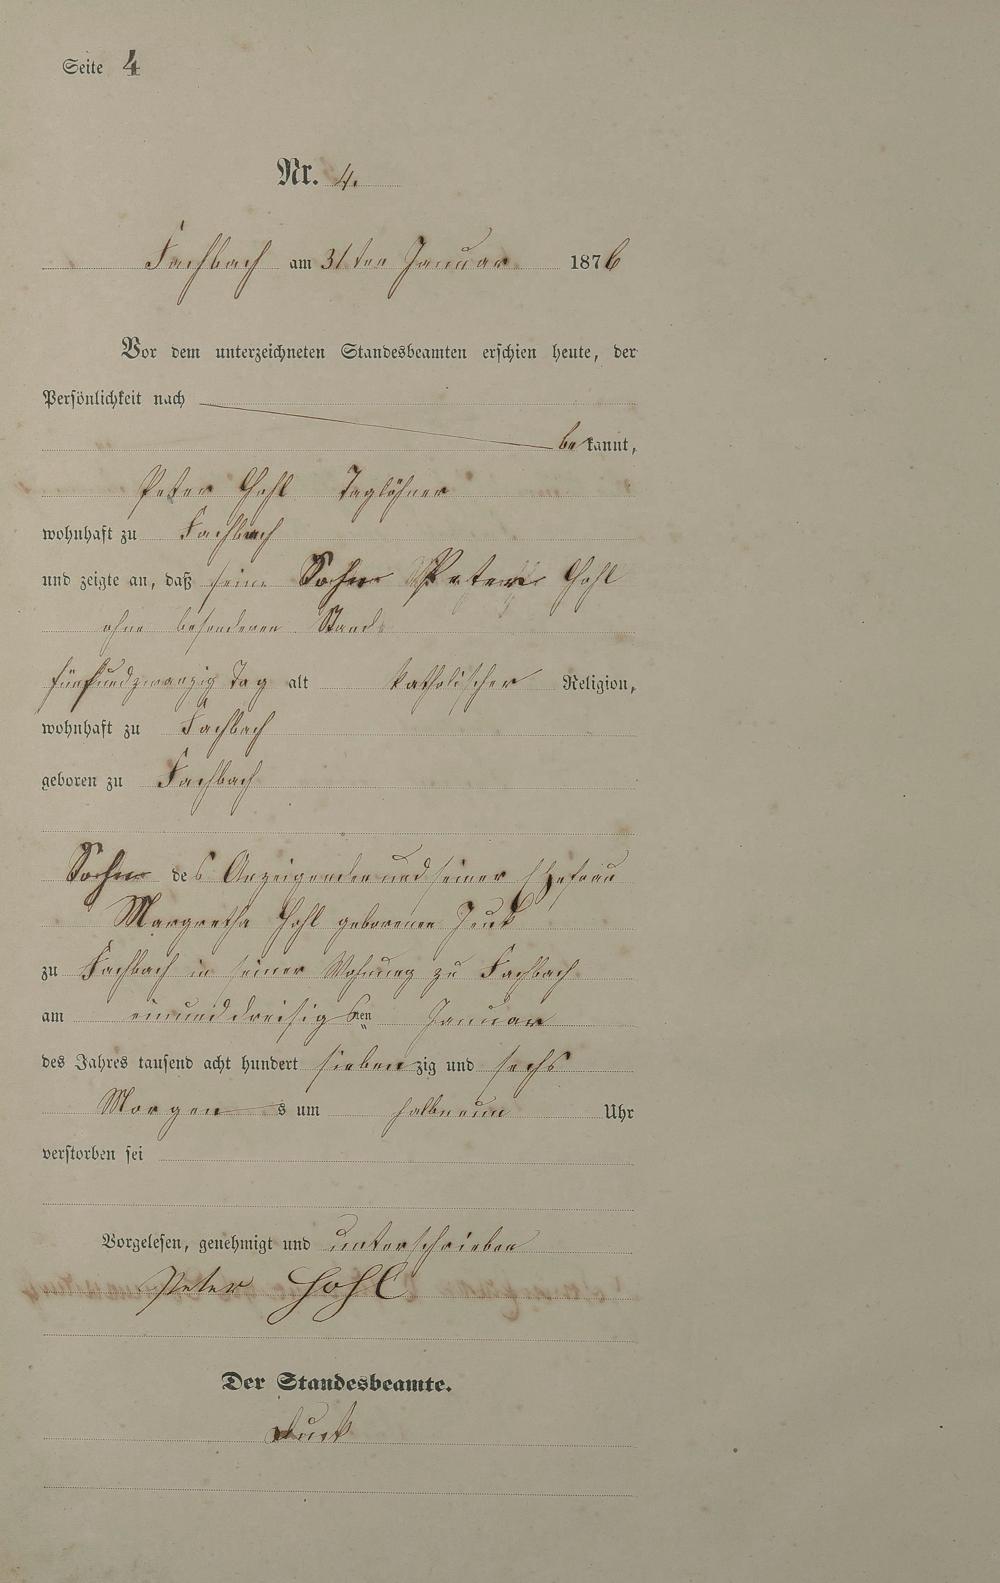 Seite 4
Nr. 4.
Fachbach am 31ten Januar 1876
Vor dem unterzeichneten Standesbeamten erschien heute, der
Persönlichkeit nach
bekannt,
Peter Hohl Taglöhner
wohnhaft zu Fachbach
und zeigte an, daß sein Sohn Peter Hohl
ohne besonderen Stand
fünfundzwanzig Tag alt katholischer Religion,
wohnhaft zu Fachbach
geboren zu Fachbach
Sohn des Anzeigenden und seiner Ehefrau
Margretha Hohl geborenen
zu Fachbach in seiner Wohnung zu Fachbach
am einunddreisigsten Januar
des Jahres tausend acht hundert siebenzig und sechs
Morgens um halbneun Uhr
verstorben sei
Vorgelesen, genehmigt und unterschrieben
Peter Hohl
Der Standesbeamte.